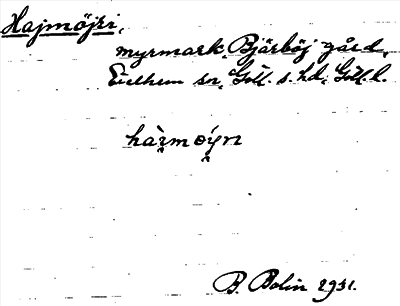 Hajmöjri,
myrmark, Bjärböj gård,
Eselhem sn, Gotl. s. hd, Gotl. l.
hàimøyrı
B. Bolin 1931.